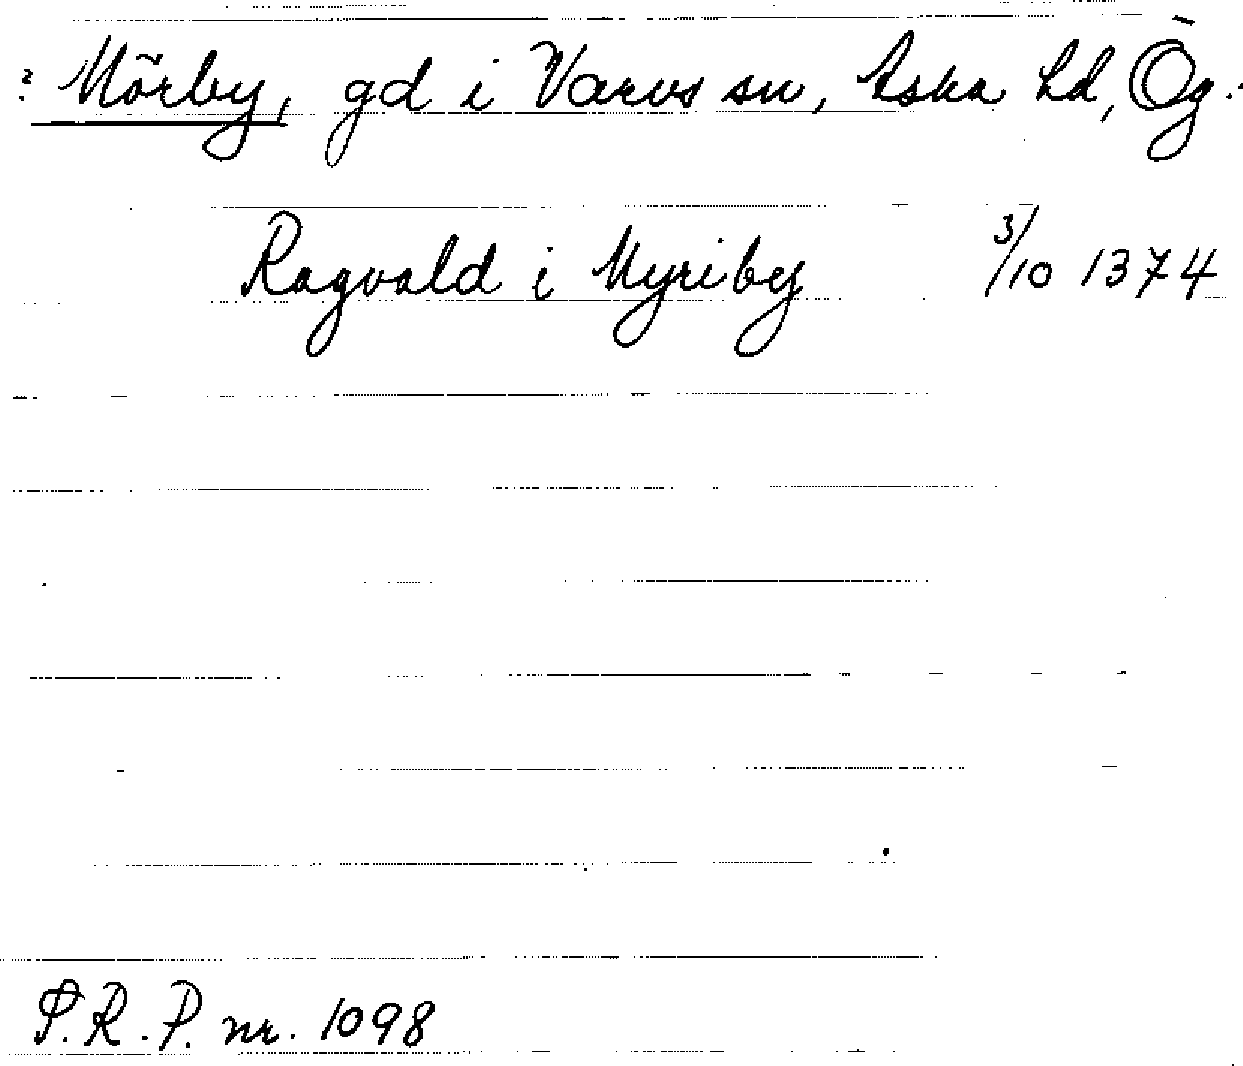 ? Mörby, gd i Varvs sn, Aska hd, Ög.
Ragvald i Myriby 3/10 1374
S.R.P. nr. 1098